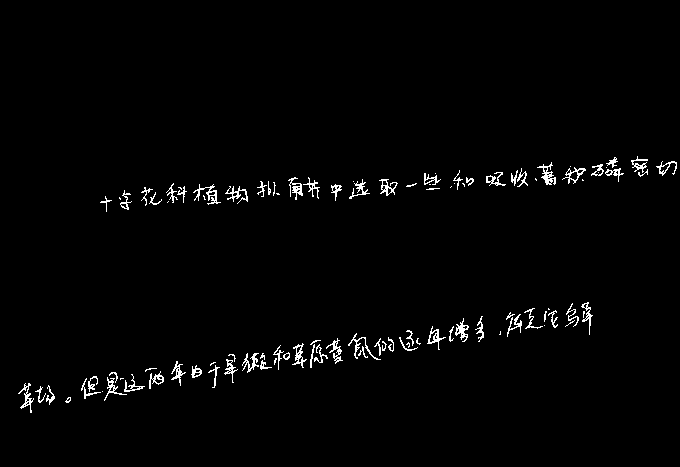 十字花科植物拟南芥中选取一些和吸收、蓄积磷密切
草场。但是这两年由于旱獭和草原黄鼠的逐年增多,库克陀乌草